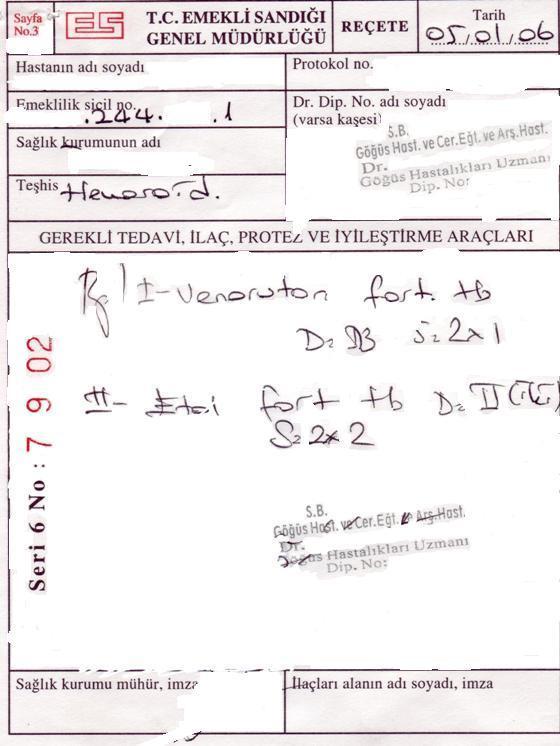 Sayfa
No.3
ES
T.C. EMEKLİ SANDIĞI
GENEL MÜDÜRLÜĞÜ
REÇETE
Tarih
05/01/06
Hastanın adı soyadı
Protokol no.
Emeklilik sicil no.
.244. .1
Dr. Dip. No. adı soyadı
(varsa kaşesi)
S.B.
Göğüs Hast. ve Cer.Eğt. ve Arş.Hast.
Dr.
Göğüs Hastalıkları Uzmanı
Dip. No:
Sağlık kurumunun adı
Teşhis Hemoroid.
GEREKLİ TEDAVİ, İLAÇ, PROTEZ VE İYİLEŞTİRME ARAÇLARI
I- Venoruton fort. tb
S=2x1
II- fort tb D= II
S=2x2
Seri 6 No : 7 9 02
S.B.
Göğüs Hast. ve Cer.Eğt. ve Arş.Hast.
Dr.
Göğüs Hastalıkları Uzmanı
Dip. No:
Sağlık kurumu mühür, imza
İlaçları alanın adı soyadı, imza